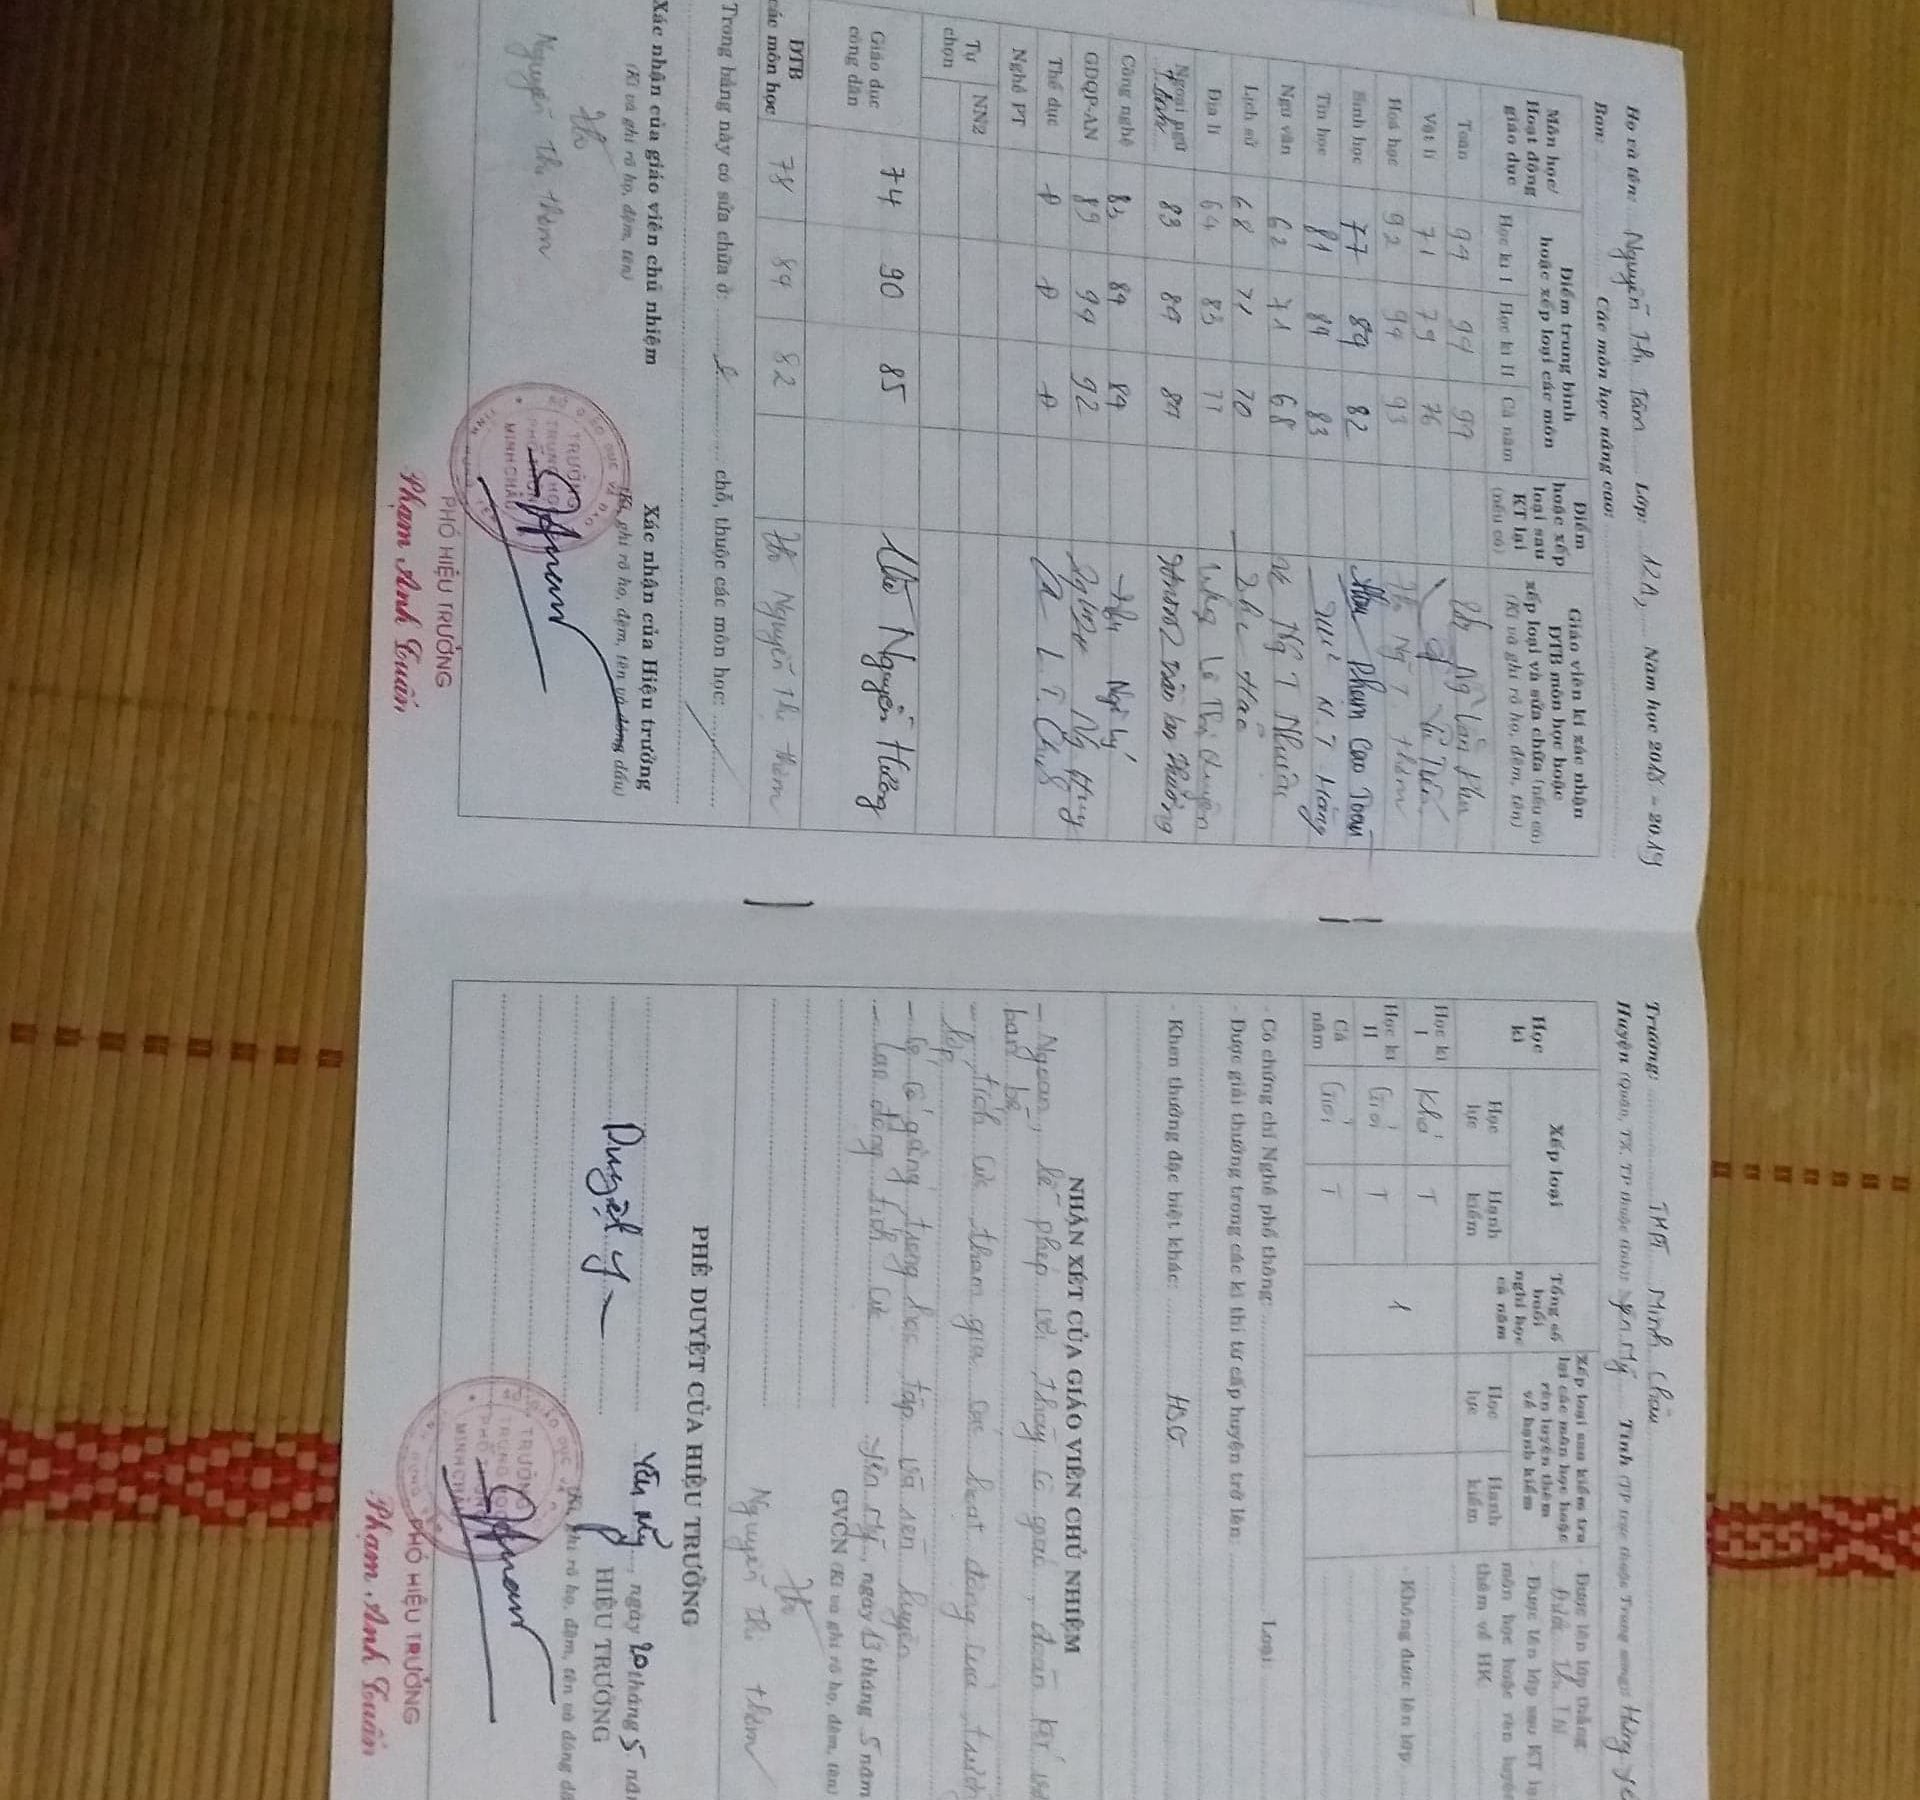 Họ và tên: Nguyễn Thị Tâm Lớp: 12A2 Năm học 2018 - 2019
Ban: Các môn học nâng cao:
Môn học/ Hoạt động giáo dục
Điểm trung bình hoặc xếp loại các môn
Học kì I Học kì II Cả năm
Điểm hoặc xếp loại sau KT lại (nếu có)
Giáo viên kí xác nhận ĐTB môn học hoặc xếp loại và sửa chữa (nếu có)
(Kí và ghi rõ họ, đệm, tên)
Toán 99 99 99
Vật lí 71 79 76
Hoá học 92 94 93 Ng T Thơm
Sinh học 77 84 82 Phạm Cao Toàn
Tin học 81 84 83 N T Hằng
Ngữ văn 62 71 68 Ng T Nhuần
Lịch sử 68 71 70
Địa lí 64 83 77 Lê Thị Quyên
Ngoại ngữ 83 89 87 Trần Lan Phương
Công nghệ 83 84 84
GDQP-AN 89 94 92 Ng Huy
Thể dục Đ Đ Đ
Nghề PT
Tự chọn NN2
Giáo dục công dân 74 90 85 Nguyễn Hường
ĐTB các môn học 78 84 82 Nguyễn Thị Thơm
Trong bảng này có sửa chữa ở: chỗ, thuộc các môn học:
Xác nhận của giáo viên chủ nhiệm
(Kí và ghi rõ họ, đệm, tên)
Nguyễn Thị Thơm
Xác nhận của Hiệu trưởng
(Kí, ghi rõ họ, đệm, tên và đóng dấu)
TRƯỜNG
TRUNG HỌC
PHỔ THÔNG
MINH CHÂU
PHÓ HIỆU TRƯỞNG
Phạm Anh Tuấn
Trường: THPT Minh Châu
Huyện (Quận, TX, TP thuộc tỉnh): Yên Mỹ Tỉnh (TP trực thuộc Trung ương): Hưng
Học kì
Xếp loại
Học lực Hạnh kiểm
Tổng số buổi nghỉ học cả năm
Xếp loại sau kiểm tra lại các môn học hoặc rèn luyện thêm về hạnh kiểm
Học lực Hạnh kiểm
- Được lên lớp thẳng
- Được lên lớp sau KT lại
môn học hoặc rèn luyện
thêm về HK
Học kì I Khá T
Học kì II Giỏi T 1
Cả năm Giỏi T
- Không được lên lớp
- Có chứng chỉ Nghề phổ thông: Loại:
- Được giải thưởng trong các kì thi từ cấp huyện trở lên:
- Khen thưởng đặc biệt khác: HSG
NHẬN XÉT CỦA GIÁO VIÊN CHỦ NHIỆM
- Ngoan, lễ phép với thầy cô giáo, đoàn kết với
bạn bè
- tích cực tham gia các hoạt động của trường
lớp
- Có cố gắng trong học tập và rèn luyện
- Lao động tích cực
Yên Mỹ, ngày 13 tháng 5 năm
GVCN (Kí và ghi rõ họ, đệm, tên)
Nguyễn Thị Thơm
PHÊ DUYỆT CỦA HIỆU TRƯỞNG
Duyệt
Yên Mỹ, ngày 20 tháng 5
HIỆU TRƯỞNG
(Kí, ghi rõ họ, đệm, tên và đóng
TRƯỜNG
TRUNG HỌC
MINH CHÂU
PHÓ HIỆU TRƯỞNG
Phạm Anh Tuấn